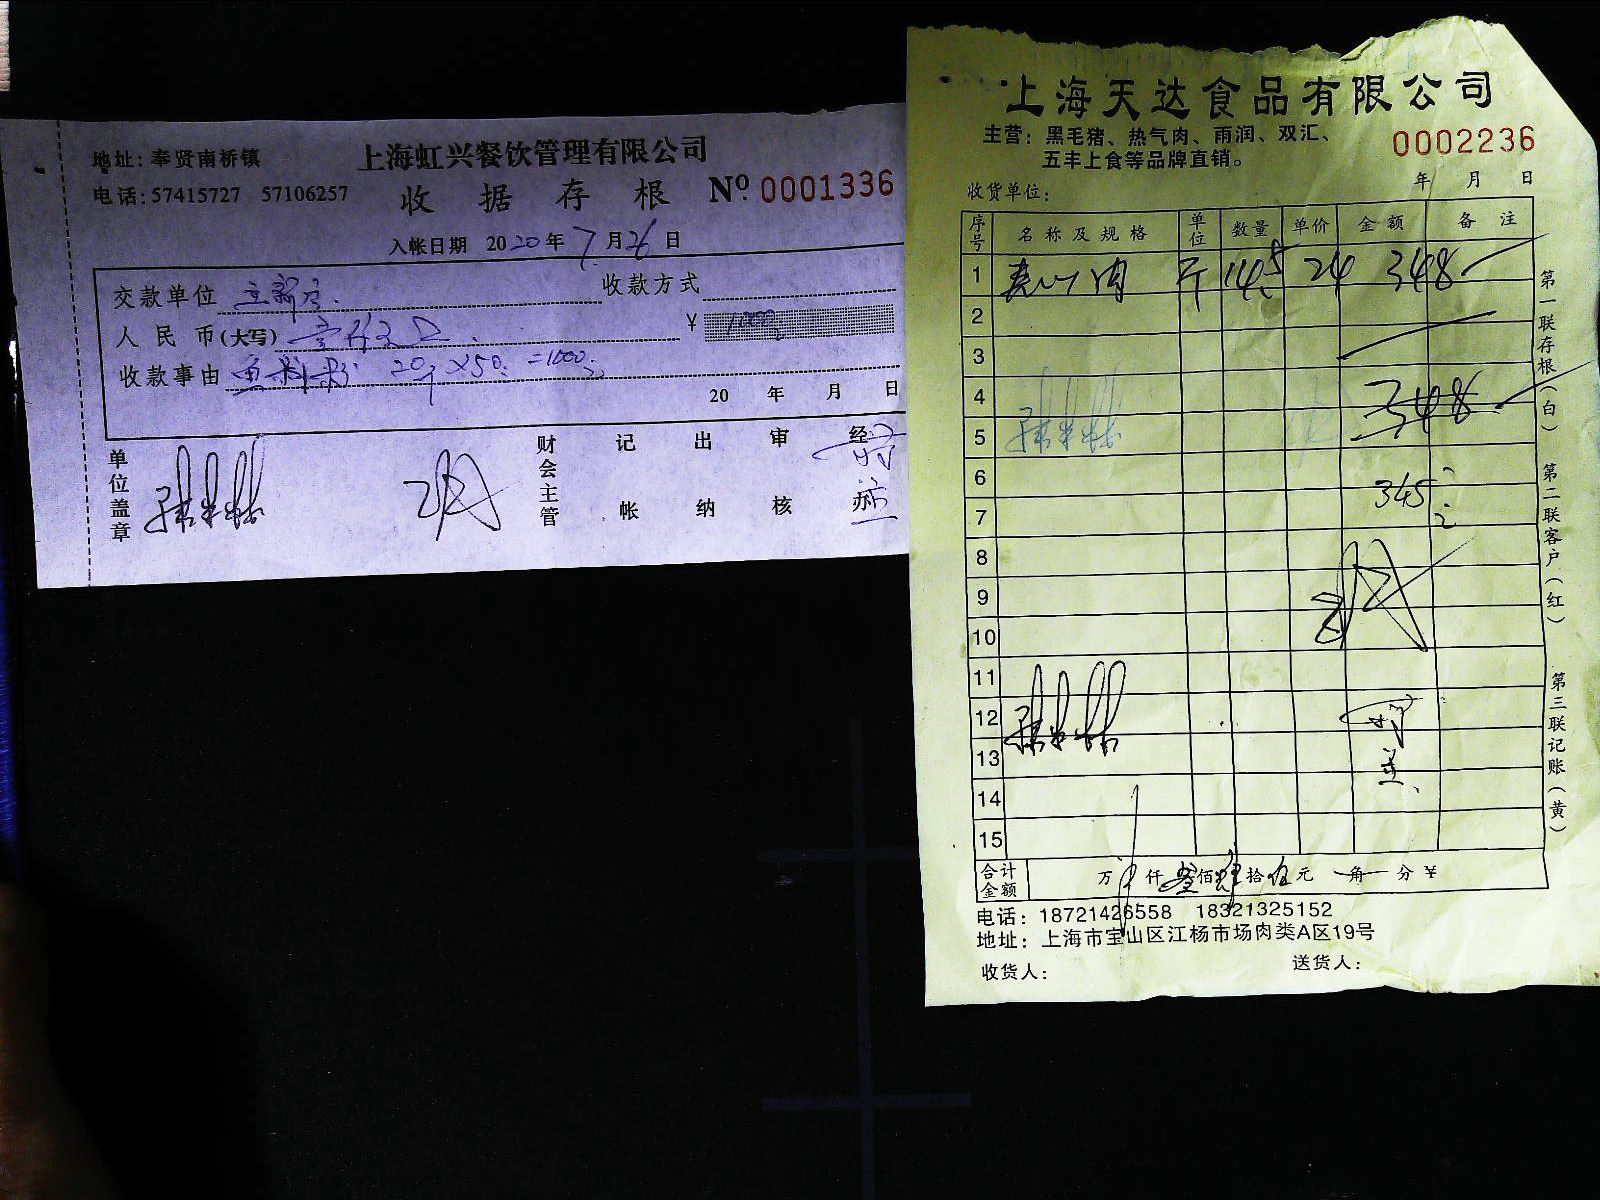 地址：奉贤南桥镇
上海虹兴餐饮管理有限公司
电话：57415727 57106257
收据存根 Nº 0001336
入帐日期 2020年7月26日
交款单位
收款方式
人民币(大写)
¥ 1000
收款事由 20 × 50 =1000
20 年 月 日
单位盖章
财会主管
记帐
出纳
审核
经办
上海天达食品有限公司
主营：黑毛猪、热气肉、雨润、双汇、
五丰上食等品牌直销。
0002236
年 月 日
收货单位：
序号 名称及规格 单位 数量 单价 金额 备注
1 肉 斤 14.5 24 348
2
3
4 348
5
6 345
7
8
9
10
11
12
13
14
15
合计金额 万 仟 叁佰肆拾伍元 角 分 ¥
电话：18721426558 18321325152
地址：上海市宝山区江杨市场肉类A区19号
收货人： 送货人：
第一联存根（白）
第二联客户（红）
第三联记账（黄）